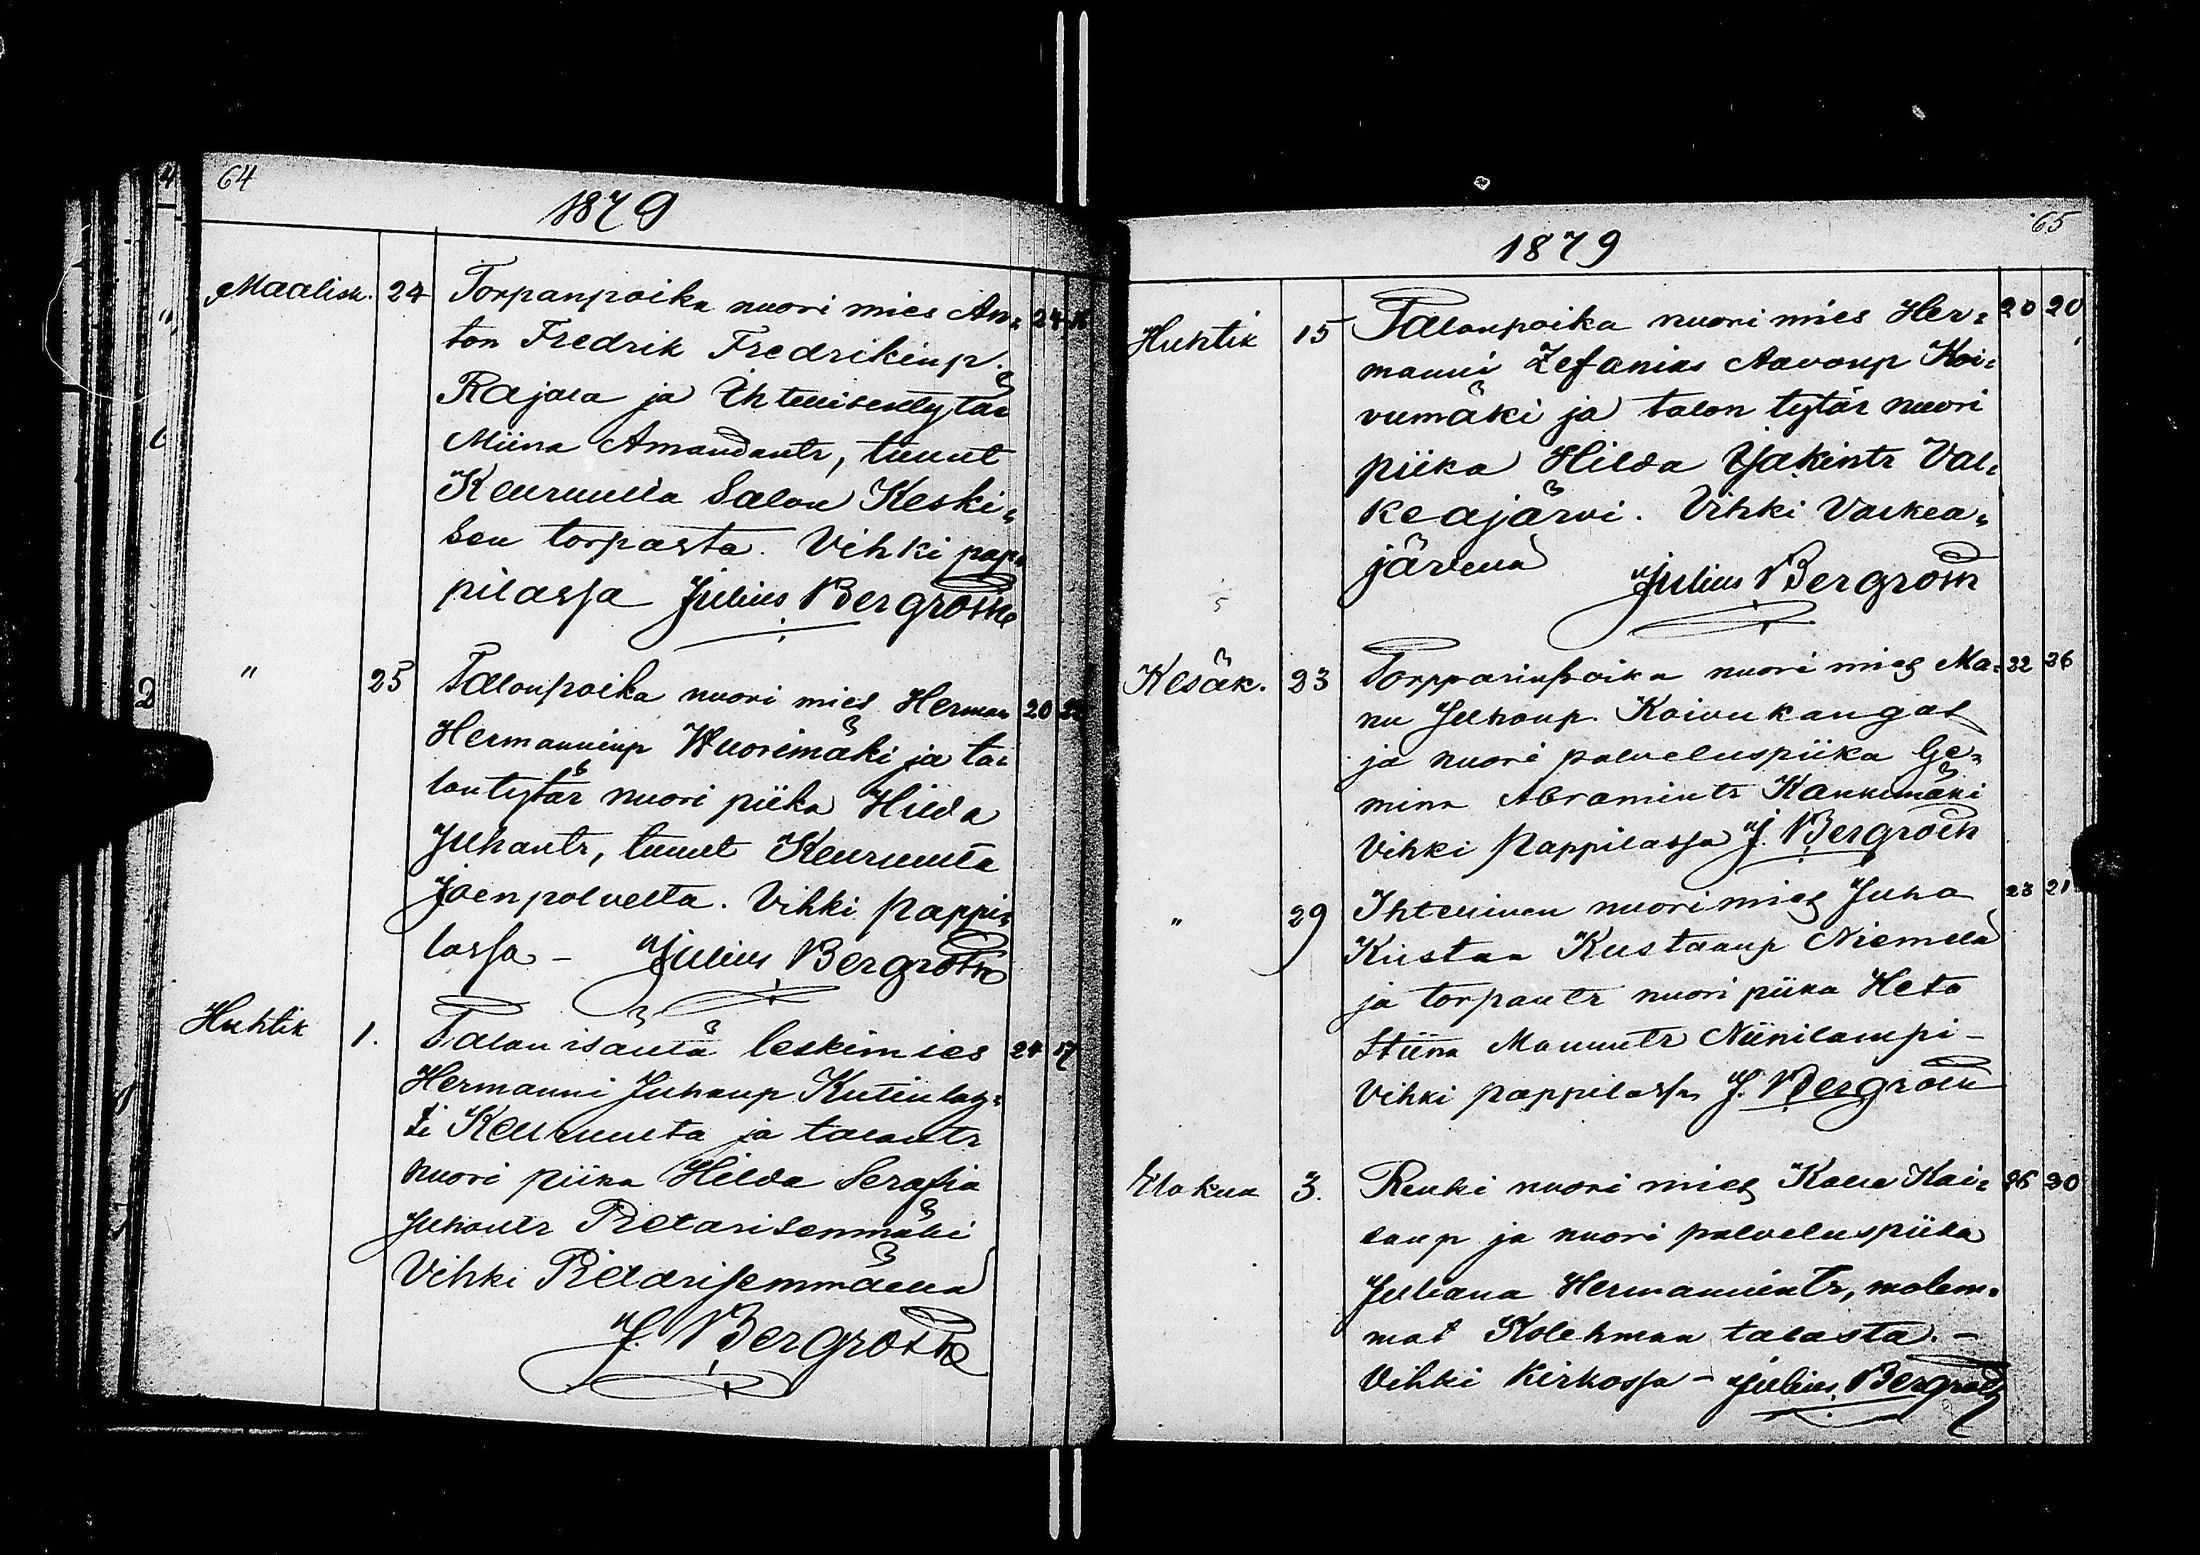 64
1879
Maalisk. 24 Torpanpoika nuori mies An= 24
ton Fredrik Fredrikinp.
Rajala ja Ihtellisentytär
Miina Amandantr, tullut
Keuruulta Salon Keski=
sen torpasta. Vihki pap=
pilassa Julius Bergroth
" 25 Talonpoika nuori mies Herman 20
Hermanninp Wuorimäki ja ta=
lontytär nuori piika Hilda
Juhantr, tullut Keuruulta
Joenpolvelta. Vihki pappi=
lassa – Julius Bergroth
Huhtik 1. Talon isäntä leskimies 24 17
Hermanni Juhanp Kutinlah=
ti Keuruulta ja talontr
nuori piika Hilda Serafia
Juhantr Pietarisenmäki
Vihki Pietarisenmäellä
J. Bergroth
65
1879
Huhtik 15 Talonpoika nuori mies Her= 20 20
manni Zefanias Aavonp Koi=
vumäki ja talon tytär nuori
piika Hilda Jakintr Val=
keajärvi. Vihki Valkea=
järvellä
Julius Bergroth
Kesäk. 23 Torpparinpoika nuori mies Ma= 22 26
nu Juhonp. Koivukangas
ja nuori palveluspiika Ge=
mina Abramintr Kankimäki
Vihki Pappilassa J. Bergroth
" 29 Ihtellinen nuori mies Juho 23 21
Kustaa Kustaanp Niemelä
ja torpantr nuori piika Heta
Stiina Manuntr Niinilampi –
Vihki pappilassa J. Bergroth
Elokuu 3. Renki nuori mies Kalle Kai= 26 30
sanp ja nuori palveluspiika
Juliana Hermannintr, molem=
mat Kolehman talosta. –
Vihki Kirkossa – Julius Bergroth